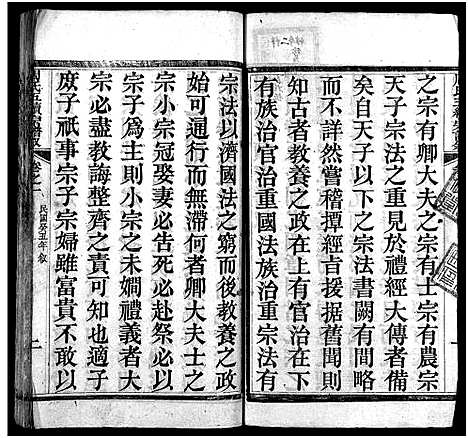 之宗有卿大夫之宗有士宗有農宗
天子宗法之重見於禮經大傳者備
矣自天子以下之宗法書闕有間略
而不詳然嘗稽撢經㫖援據舊聞則
知古者教養之政在上有官治在下
有族治官治重國法族治重宗法有
宗法以濟國法之窮而後教養之政
始可通行而無滯何者卿大夫士之
宗小宗冠娶妻必告死必赴祭必以
宗子爲主則小宗之未嫺禮教者大
宗必盡教誨整齊之責可知也適子
庶子祇事宗子宗婦雖富貴不敢以
卷之一
民國癸丑年叙
一